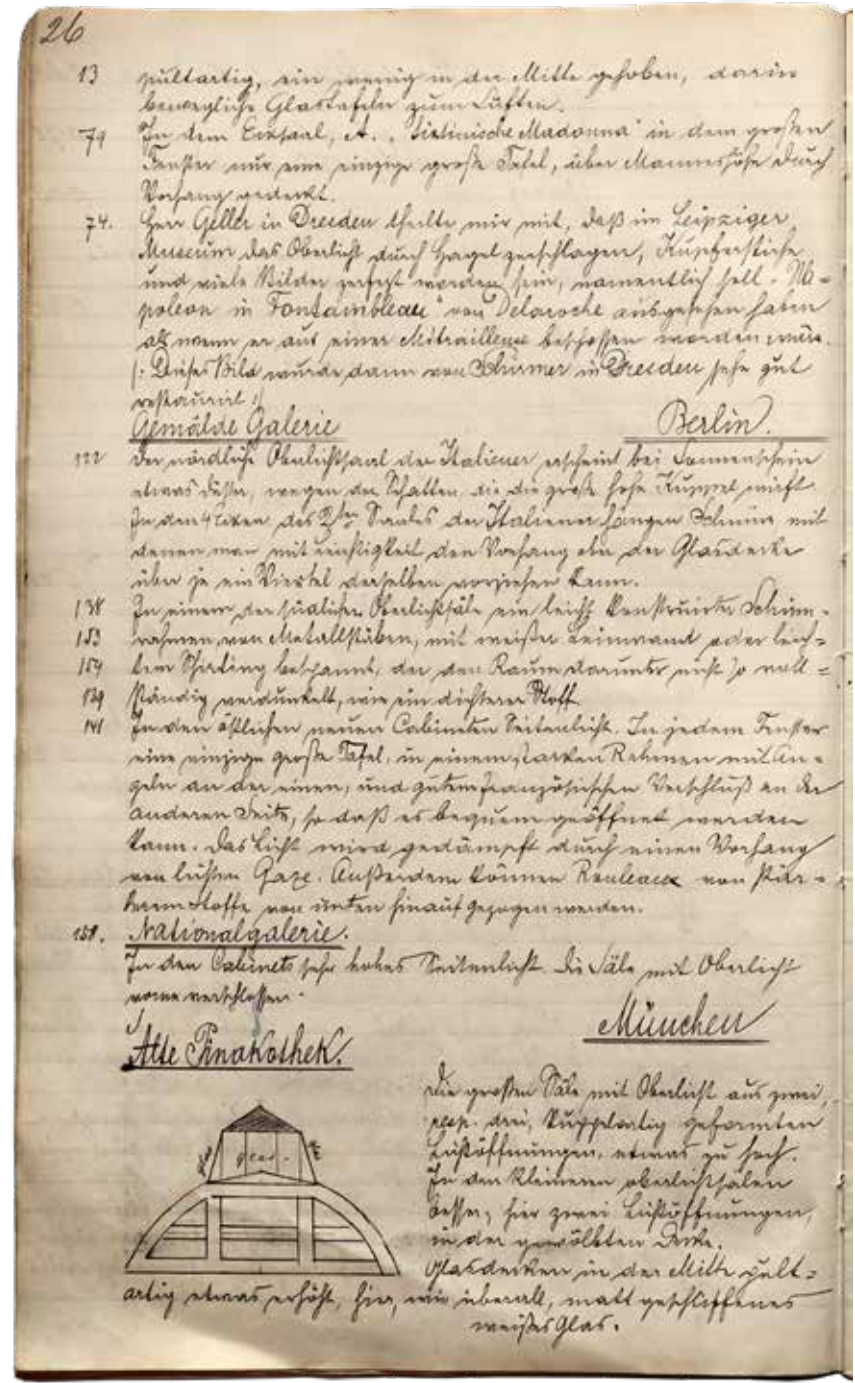 26
13 pultartig, ein wenig in der Mitte gehoben, darin
bewegliche Glastafeln zum Lüften.
79 In dem Ecksaal, A., "Sixtinische Madonna" in dem großen
Fenster nur eine einzige große Tafel, über Manneshöhe durch
Vorhang gedeckt.
74. Herr Geller in Dresden theilte mir mit, daß im Leipziger
Museum das Oberlicht durch Hagel zerschlagen, Kupferstiche
und viele Bilder zerfetzt worden sein, namentlich soll "Na=
poleon in Fontainbleau" von Delaroche ausgesehen haben
als wenn er aus einer Mitrailleuse beschossen worden wäre.
(: Dieses Bild wurde dann von Schirmer in Dresden sehr gut
restaurirt :)
Gemälde Galerie Berlin.
122 Der nördliche Oberlichtsaal der Italiener erscheint bei Sonnenschein
etwas düster, wegen der Schatten, die die große hohe Kuppel wirft.
In den 4 Ecken des 2ten Saales der Italiener hängen Schnüre mit
denen man mit Leichtigkeit den Vorhang ober der Glasdecke
über je ein Viertel derselben vorziehen kann.
138 In einem der südlichen Oberlichtsäle ein leicht konstruirter Schirm=
153 rahmen, von Metallstäben, mit weißer Leinwand oder leich=
154 tem Shirting bespannt, der den Raum darunter nicht so voll=
139 ständig verdunkelt, wie ein dichterer Stoff.
141 In den östlichen neuen Cabineten Seitenlicht. In jedem Fenster
eine einzige große Tafel, in einem starken Rahmen mit An=
geln an der einen, und gutem französischen Verschluß an der
anderen Seite, so daß es bequem geöffnet werden
kann. Das Licht wird gedämpft durch einen Vorhang
von lichter Gaze. Außerdem können Rouleaux von stär=
kerem Stoffe von unten hinauf gezogen werden.
158. Nationalgalerie.
In den Cabinets sehr hohes Seitenlicht. Die Säle mit Oberlicht
waren verschlossen.
München
Alte Pinakothek.
Die großen Säle mit Oberlicht aus zwei,
resp. drei, kuppelartig geformten
Lichtöffnungen, etwas zu hoch.
In den kleineren Oberlichtsälen
besser, hier zwei Lichtöffnungen,
in der gewölbten Decke.
Glasdecken in der Mitte pult=
artig etwas erhöht, hier, wie überall, matt geschliffenes
weißes Glas.